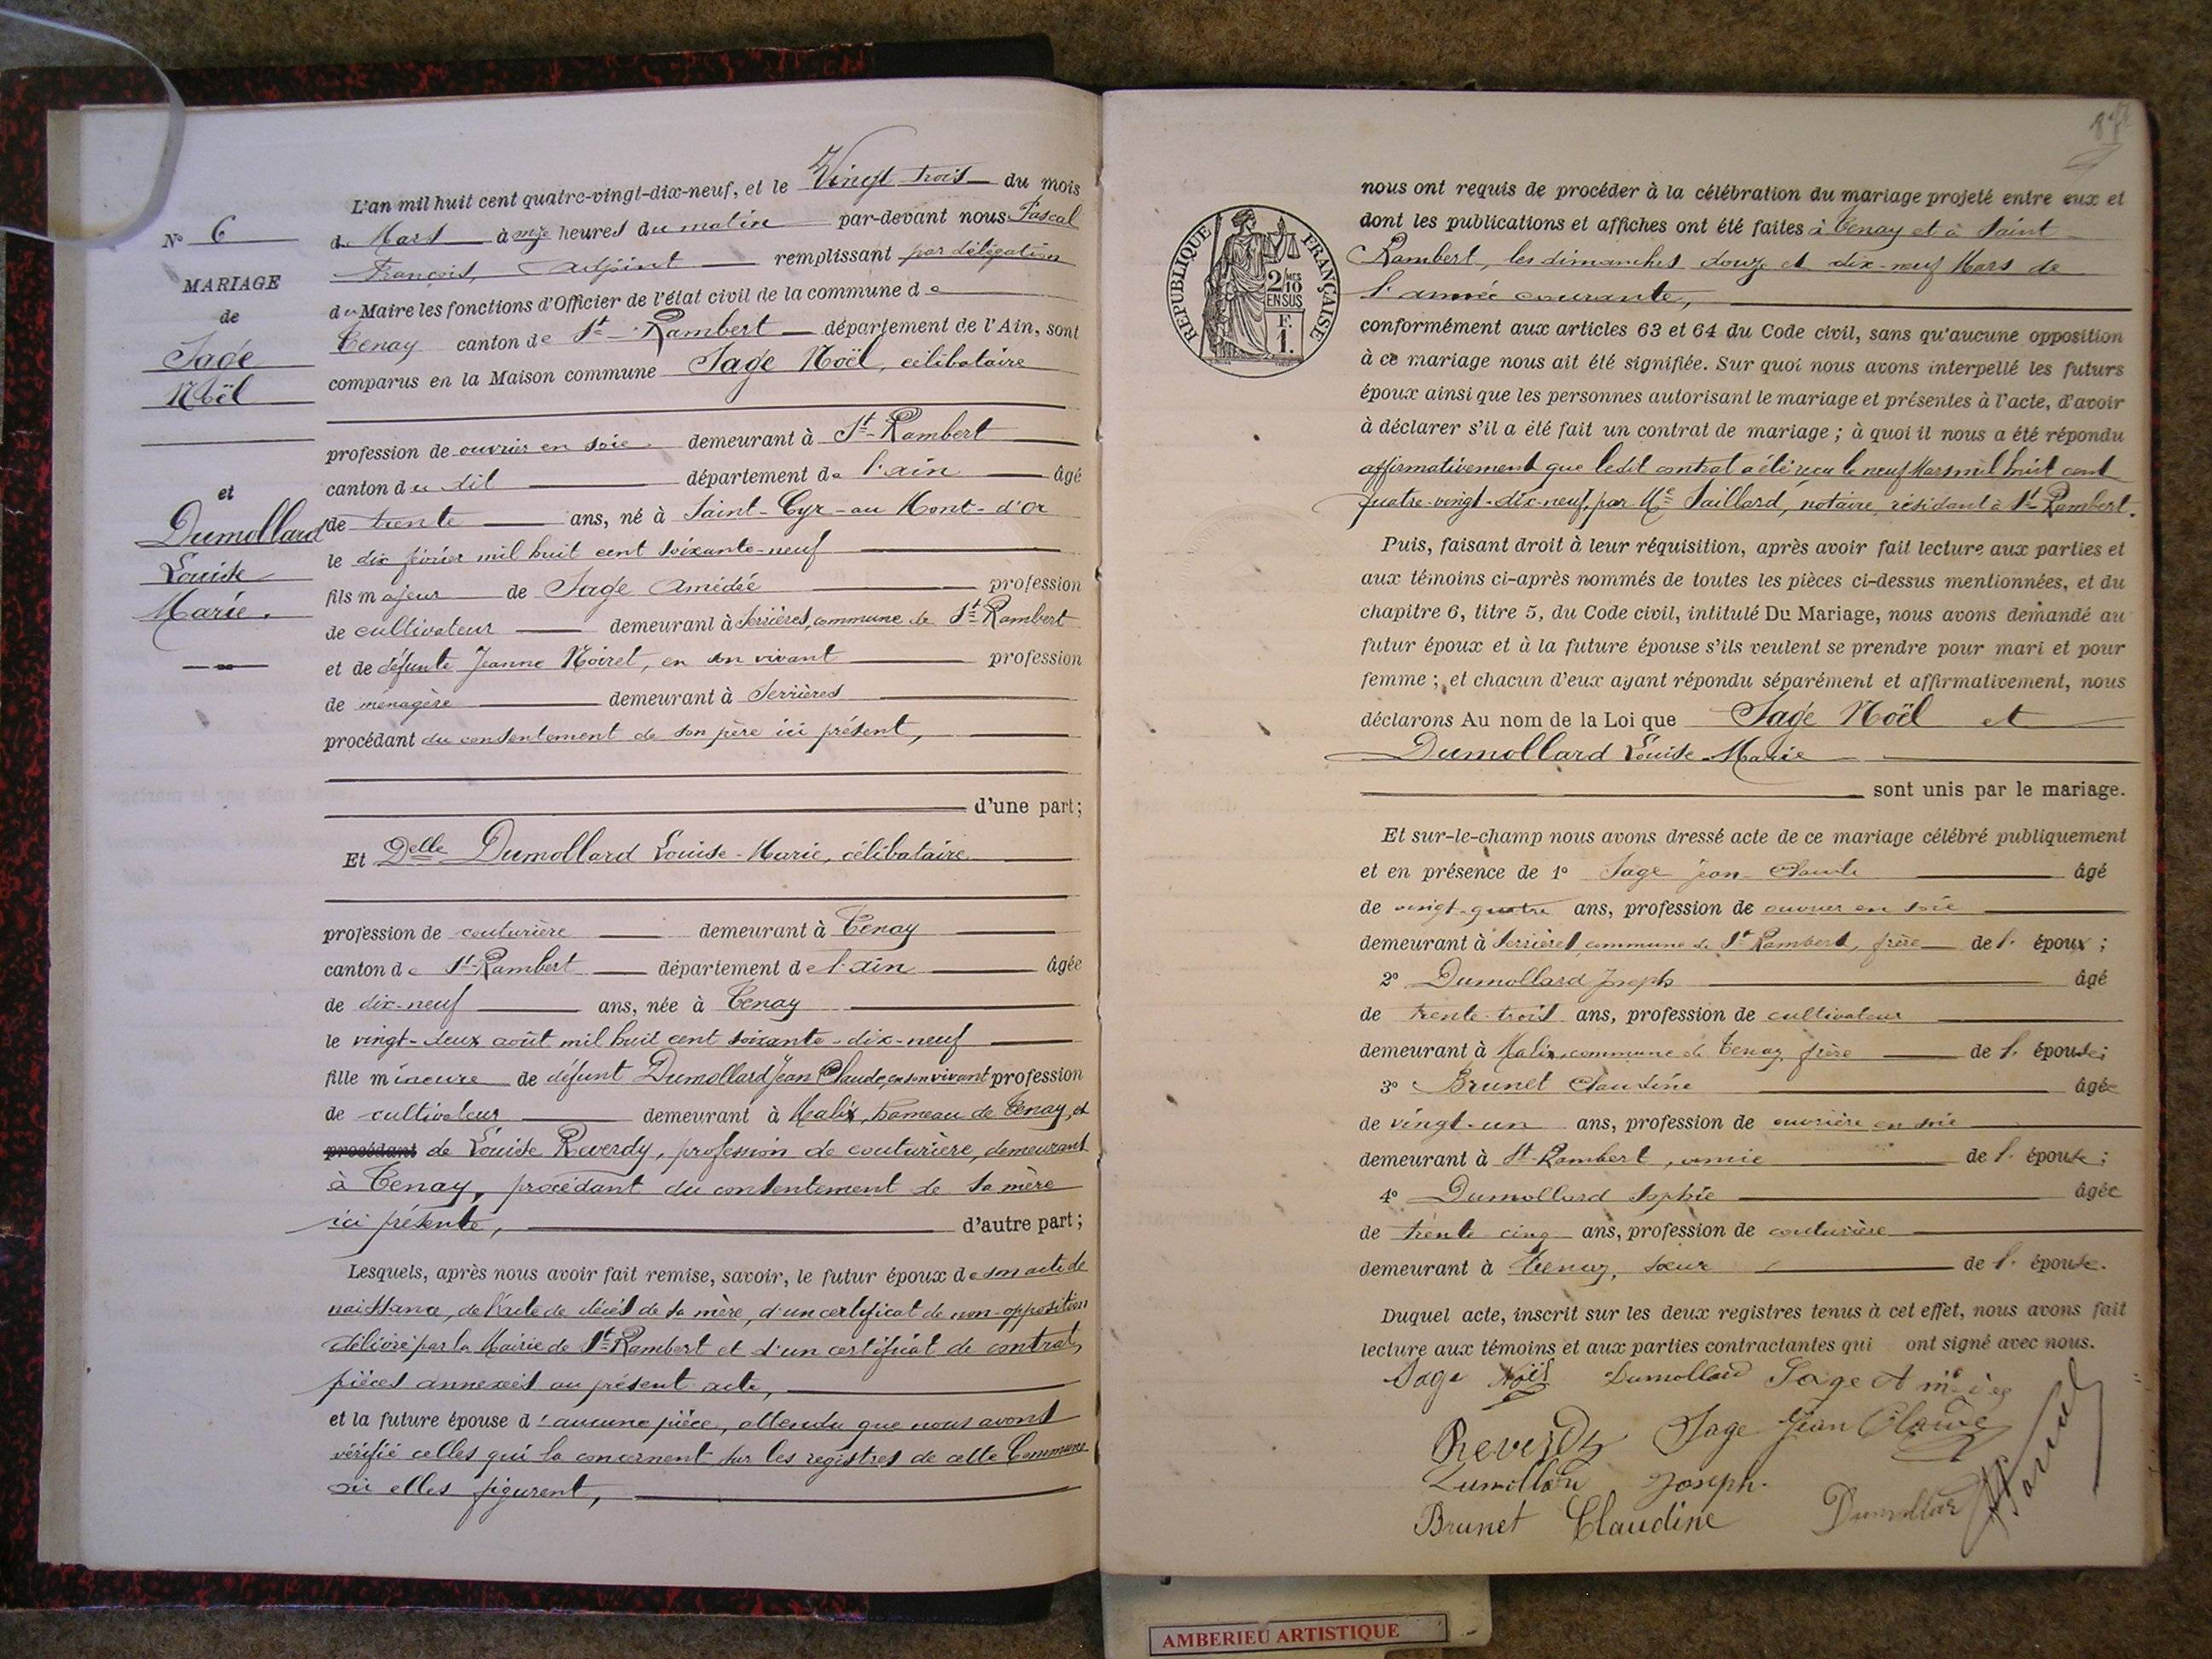 N° 6
MARIAGE
de
Sage
Noël
et
Dumollard
Louise
Marie.
L'an mil huit cent quatre-vingt-dix-neuf, et le Vingt trois du mois
de Mars à onze heures du matin par-devant nous Pascal
François, adjoint remplissant par délégation
du Maire les fonctions d'Officier de l'état civil de la commune de
Tenay canton de St-Rambert département de l'Ain, sont
comparus en la Maison commune Sage Noël, célibataire
profession de ouvrier en soie demeurant à St-Rambert
canton du dit département de l'ain âgé
de trente ans, né à Saint-Cyr-au Mont-d'Or
le dix février mil huit cent soixante-neuf
fils majeur de Sage Amédée profession
de cultivateur demeurant à Serrières, commune de St Rambert
et de défunte Jeanne Noiret, en son vivant profession
de ménagère demeurant à Serrières
procédant du consentement de son père ici présent,
d'une part;
Et Delle Dumollard Louise-Marie, célibataire
profession de couturière demeurant à Tenay
canton de St-Rambert département de l'ain âgée
de dix-neuf ans, née à Tenay
le vingt-deux août mil huit cent soixante-dix-neuf
fille mineure de défunt Dumollard Jean Claude, en son vivant profession
de cultivateur demeurant à Malix, hameau de Tenay, et
procédant de Louise Reverdy, profession de couturière, demeurant
à Tenay, procédant du consentement de sa mère
ici présente, d'autre part;
Lesquels, après nous avoir fait remise, savoir, le futur époux de son acte de
naissance, de l'acte de décès de sa mère, d'un certificat de non-opposition
délivré par la Mairie de St-Rambert et d'un certificat de contrat,
pièces annexées au présent acte,
et la future épouse d'aucune pièce, attendu que nous avons
vérifié celles qui la concernent sur les registres de cette Commune
où elles figurent,
RÉPUBLIQUE FRANÇAISE
2/10 MES
EN SUS
F.
1.
nous ont requis de procéder à la célébration du mariage projeté entre eux et
dont les publications et affiches ont été faites à Tenay et à Saint
Rambert, les dimanches douze et dix-neuf Mars de
l'année courante,
conformément aux articles 63 et 64 du Code civil, sans qu'aucune opposition
à ce mariage nous ait été signifiée. Sur quoi nous avons interpellé les futurs
époux ainsi que les personnes autorisant le mariage et présentes à l'acte, d'avoir
à déclarer s'il a été fait un contrat de mariage; à quoi il nous a été répondu
affirmativement que ledit contrat a été reçu le neuf Mars mil huit cent
quatre-vingt-dix-neuf, par Me Saillard, notaire, résidant à St Rambert.
Puis, faisant droit à leur réquisition, après avoir fait lecture aux parties et
aux témoins ci-après nommés de toutes les pièces ci-dessus mentionnées, et du
chapitre 6, titre 5, du Code civil, intitulé Du Mariage, nous avons demandé au
futur époux et à la future épouse s'ils veulent se prendre pour mari et pour
femme; et chacun d'eux ayant répondu séparément et affirmativement, nous
déclarons Au nom de la Loi que Sage Noël et
Dumollard Louise-Marie
sont unis par le mariage.
Et sur-le-champ nous avons dressé acte de ce mariage célébré publiquement
et en présence de 1° Sage Jean-Claude âgé
de vingt-quatre ans, profession de ouvrier en soie
demeurant à Serrières, commune de St Rambert, frère de l' époux;
2° Dumollard Joseph âgé
de trente-trois ans, profession de cultivateur
demeurant à Malix, commune de Tenay, frère de l' épouse;
3° Brunet Claudine âgée
de vingt-un ans, profession de ouvrière en soie
demeurant à St-Rambert, amie de l' épouse;
4° Dumollard Sophie âgée
de trente cinq ans, profession de couturière
demeurant à Tenay, sœur de l' épouse.
Duquel acte, inscrit sur les deux registres tenus à cet effet, nous avons fait
lecture aux témoins et aux parties contractantes qui ont signé avec nous.
Sage Noël Dumollard Sage Amédée
Reverdy Sage Jean Claude
Dumollard Joseph.
Brunet Claudine Dumollard
AMBERIEU ARTISTIQUE